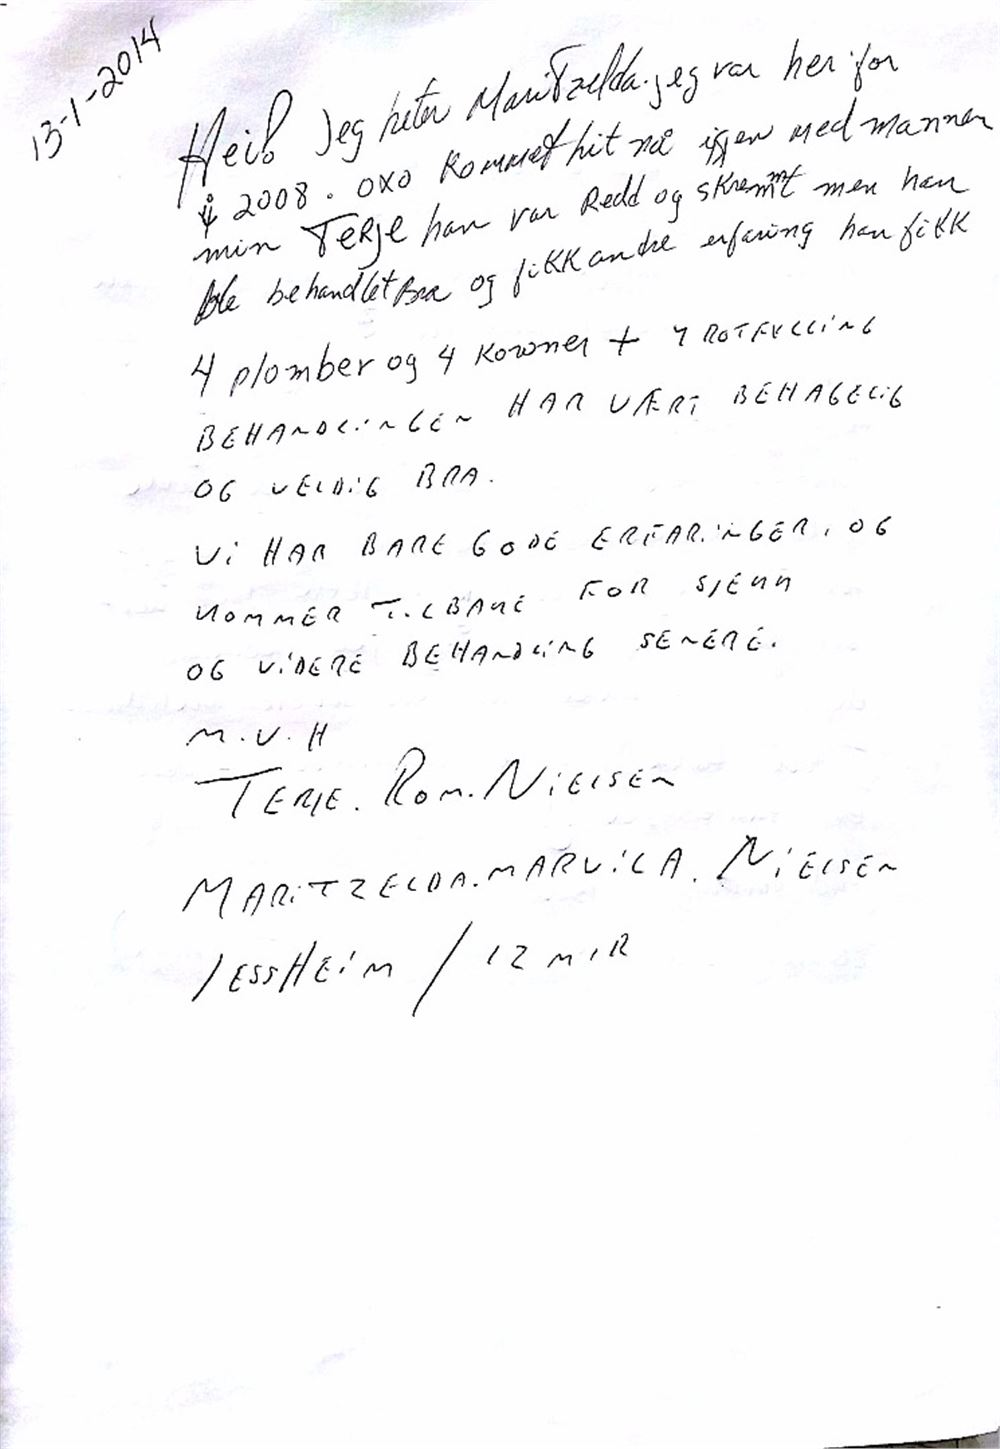 13-1-2014
Hei! Jeg heter Maritzelda. jeg var her for
i 2008. oxo kommet hit nå igjen med mannen
min TERJE han var Redd og skremt men han
ble behandlet Bra og fikk andre erfaring han fikk
4 plomber og 4 Koroner + 1 ROTFYLLING
BEHANDLINGEN HAR VÆRT BEHAGELIG
OG VELDIG BRA.
Vi HAR BARE GODE ERFARINGER, OG
KOMMER TILBAKE FOR SJEKK
OG VIDERE BEHANDLING SENERE.
M.V.H
TERJE. ROM. NIELSEN
MARITZELDA. MARVILA. NIELSEN
JESSHEIM / IZMIR